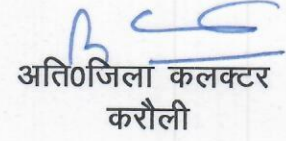 अति0जिला कलक्टर
करौली